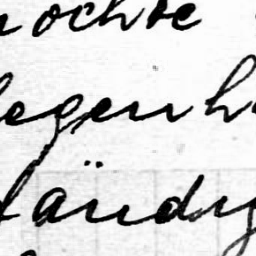 ochte
egenh
ändig